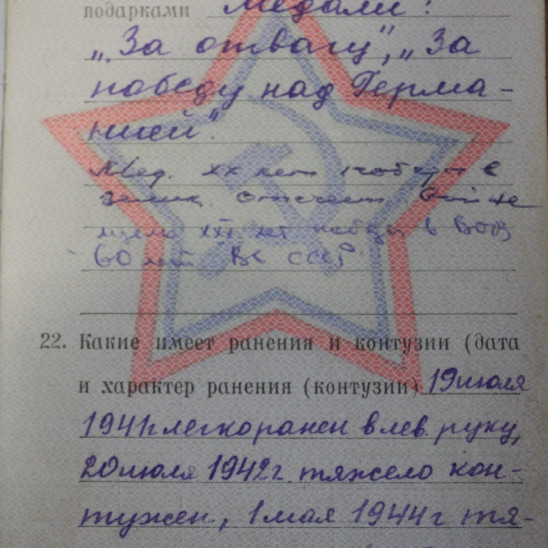 подарками Медали:
„За отвагу", „За
победу над Герма-
нией".
Мед. XX лет победы в
велик. отечест. войне
победы в ВОВ
60 лет ВС СССР
22. Какие имеет ранения и контузии (дата
и характер ранения (контузии) 19 июля
1941г легко ранен в лев. руку,
20 июля 1942г. тяжело кон-
тужен, 1 мая 1944 г тя-